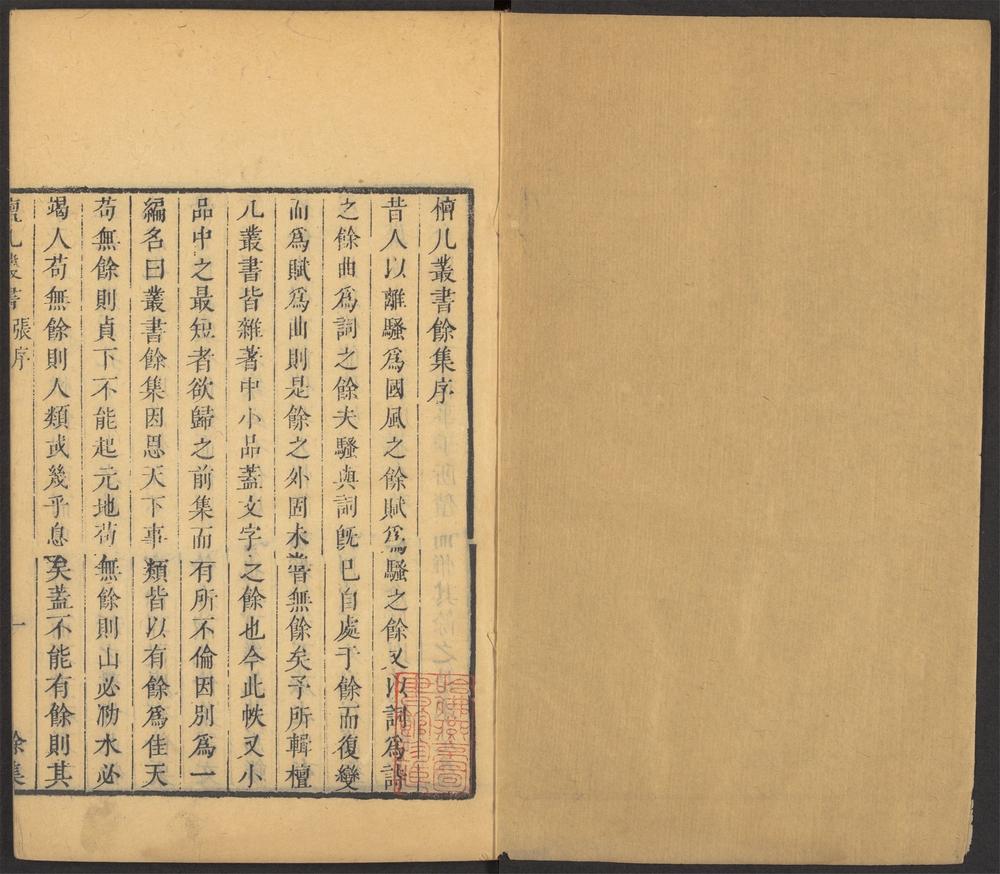 檀几叢書餘集序
昔人以離騷爲國風之餘賦爲騷之餘又以詞爲詩
之餘曲爲詞之餘夫騷與詞旣已自處于餘而復變
而爲賦爲曲則是餘之外固未嘗無餘矣予所輯檀
几叢書皆雜著中小品蓋文字之餘也今此帙又小
品中之最短者欲歸之前集而有所不倫因別爲一
編名曰叢書餘集因思天下事類皆以有餘爲佳天
苟無餘則貞下不能起元地苟無餘則山必泐水必
竭人苟無餘則人類或幾乎息矣蓋不能有餘則其
檀几叢書 張序 一 餘集